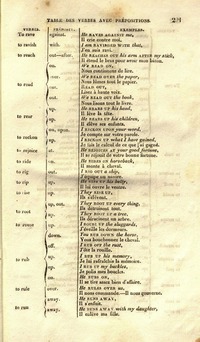 TABLE DES VERBES AVEC PRÉPOSITIONS. 2
VERBES. PRÉPOSIT. EXEMPLES.
To rave against. HE RAVES AGAINST me,
Il crie contre moi.
to ravish with. I am RAVISHED WITH that,
J'en suis ravi.
to reach out—after. He REACHES OUT his arm AFTER my stick,
Il étend le bras pour avoir mon bâton.
on. We READ ON,
Nous continuons de lire.
over. We READ OVER the paper,
Nous lisons tout le papier.
to read out. READ OUT,
Lisez à haute voix.
out. We READ OUT the book,
Nous lisons tout le livre.
up. He REARS UP his head,
to rear Il lève la tête.
up. He REARS UP his children,
Il élève ses enfans.
on, upon. I RECKON UPON your word,
to reckon Je compte sur votre parole.
up. I RECKON UP what I have gained,
Je fais le calcul de ce que j'ai gagné.
to rejoice at. He REJOICES AT your good fortune,
Il se réjouit de votre bonne fortune.
to ride up. He RIDES on horseback,
Il monte à cheval.
to rig out.
to rip up. He RIPS UP his belly,
Il lui ouvre le ventre.
up. They RISE UP,
Ils s'élèvent.
up, out. They ROOT UP every thing,
to root Ils déracinent tout.
up. They ROOT UP a tree,
Ils déracinent un arbre.
to rouse up. I ROUSE UP the sluggards,
J'éveille les dormeurs.
down. You RUB DOWN the horse,
Vous bouchonnez le cheval.
off. I RUB OFF the rust,
J'ôte la rouille.
to rub up. I RUB UP his memory,
Je lui rafraîchis la mémoire.
up. I RUB UP my buckles,
Je polis mes boucles.
on. He RUBS ON,
Il se tire assez bien d'affaire.
to rule over. He RULES OVER us,
Il nous commande.—Il nous gouverne.
away. He RUNS AWAY,
to run Il s'enfuit.
away. He RUNS AWAY with my daughter,
Il enlève ma fille.